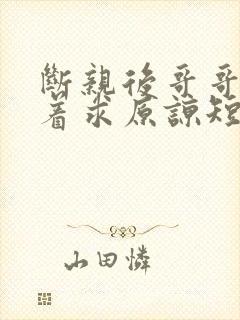 斷親後哥哥
着求原諒短
山田憐